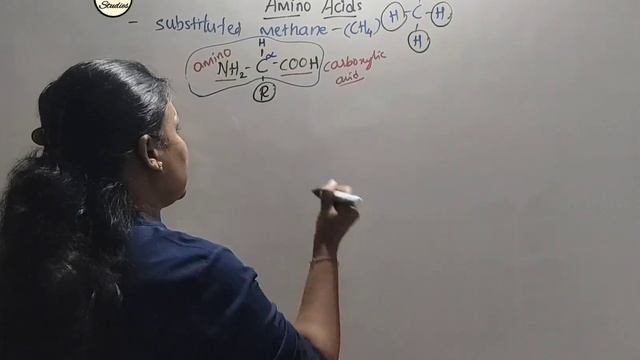 Studies
Amino Acids
- substituted methane - (CH4) H - C - H
H
H
amino
α
NH2 - C - COOH carboxylic
acid
R